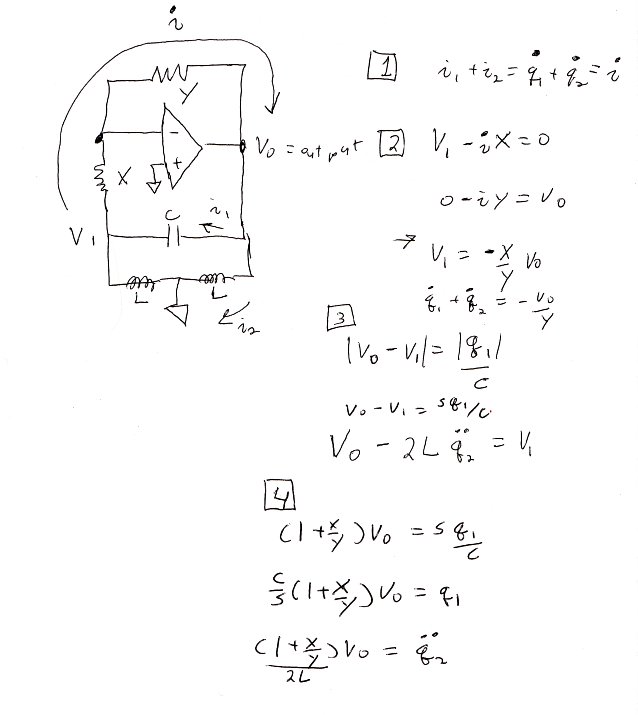 i
Y
-
+
V₀ = output
X
C
i₁
V₁
L
L
i₂
1
i₁ + i₂ = q̇₁ + q̇₂ = i
2
V₁ - iX = 0
0 - iY = V₀
→ V₁ = -X/Y V₀
q̇₁ + q̇₂ = -V₀/Y
3
|V₀ - V₁| = |q₁|/C
V₀ - V₁ = sq₁/C
V₀ - 2L q̈₂ = V₁
4
(1 + X/Y)V₀ = s q₁/C
C/s (1 + X/Y)V₀ = q₁
(1 + X/Y)V₀/2L = q̈₂